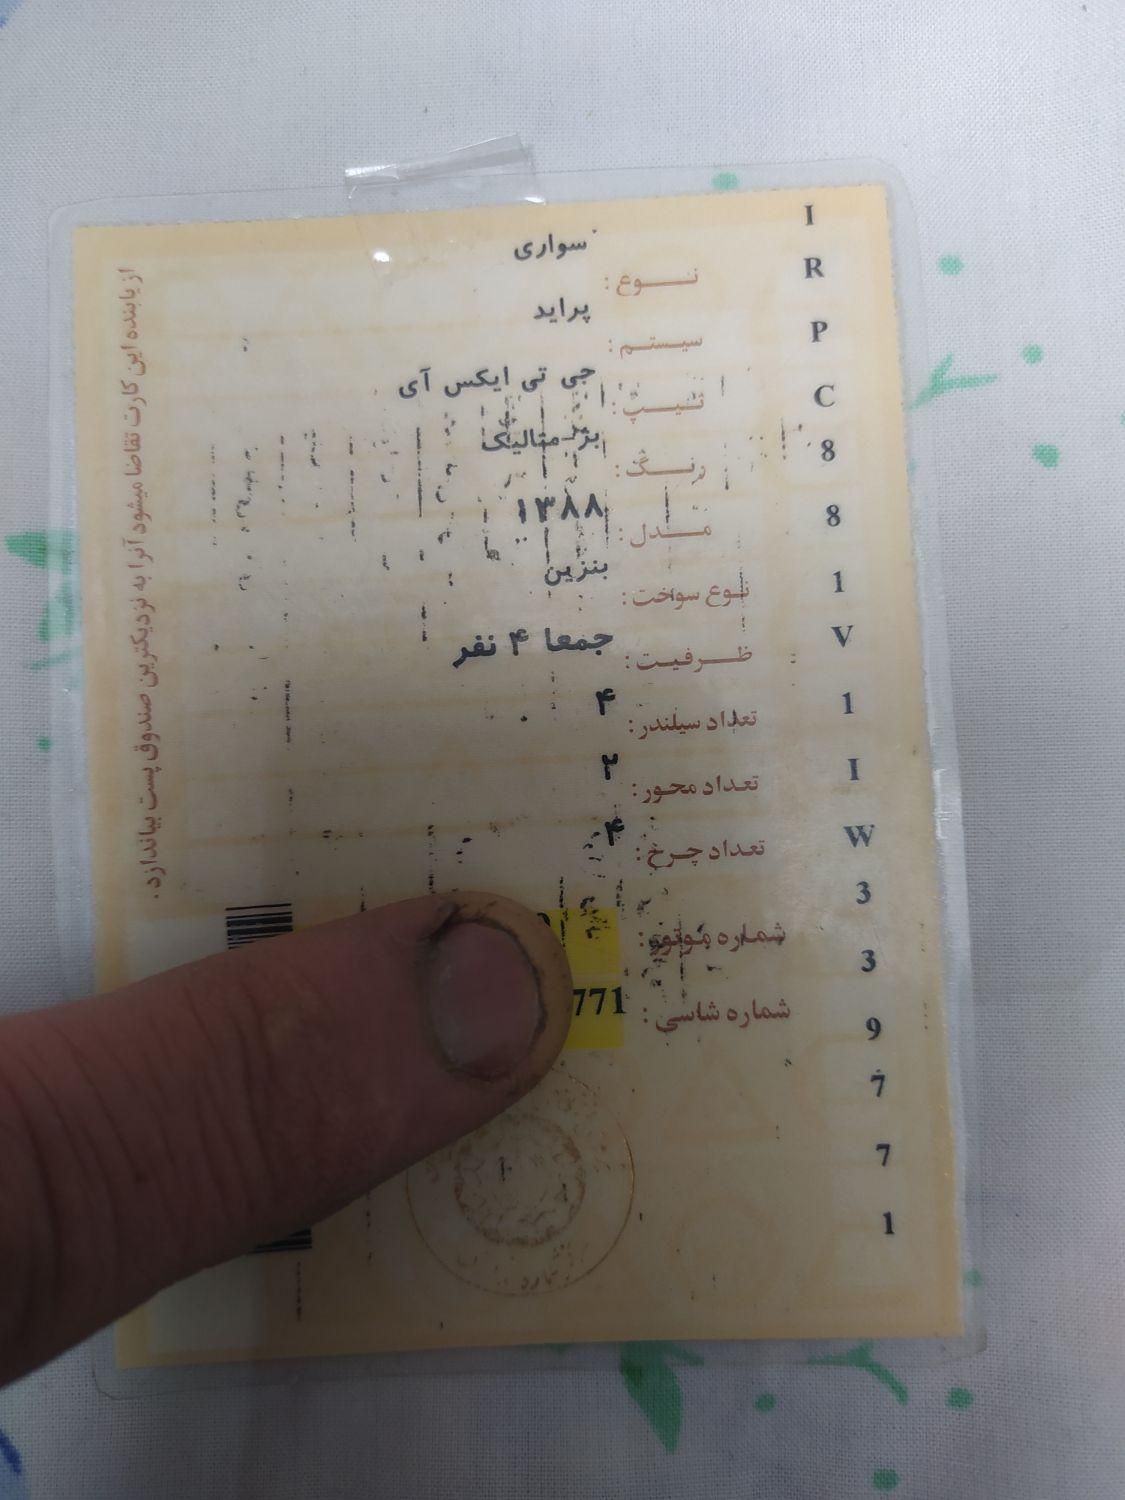 نوع : سواری
سیستم : پراید
تیپ : جی تی ایکس آی
رنگ : بژ متالیک
مدل : ۱۳۸۸
نوع سوخت : بنزین
ظرفیت : جمعا ۴ نفر
تعداد سیلندر : ۴
تعداد محور : ۲
تعداد چرخ : ۴
شماره موتور :
شماره شاسی : 771
IRPC881V1IW339771
از یابنده این کارت تقاضا میشود آنرا به نزدیکترین صندوق پست بیاندازد.